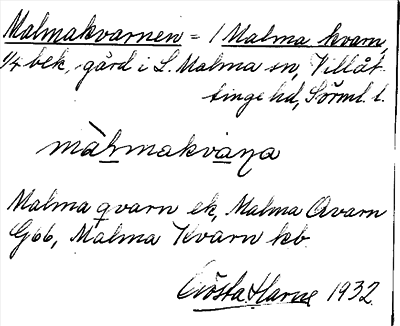 Malmakvarnen = 1 Malma kvarn,
1/4 bek, gård i L. Malma sn, Villåt-
tinge hd, Sörml. l.
màlmakvaɳa
Malma qvarn ek, Malma Qvarn
G66, Malma Kvarn kb
Gösta Harne 1932.